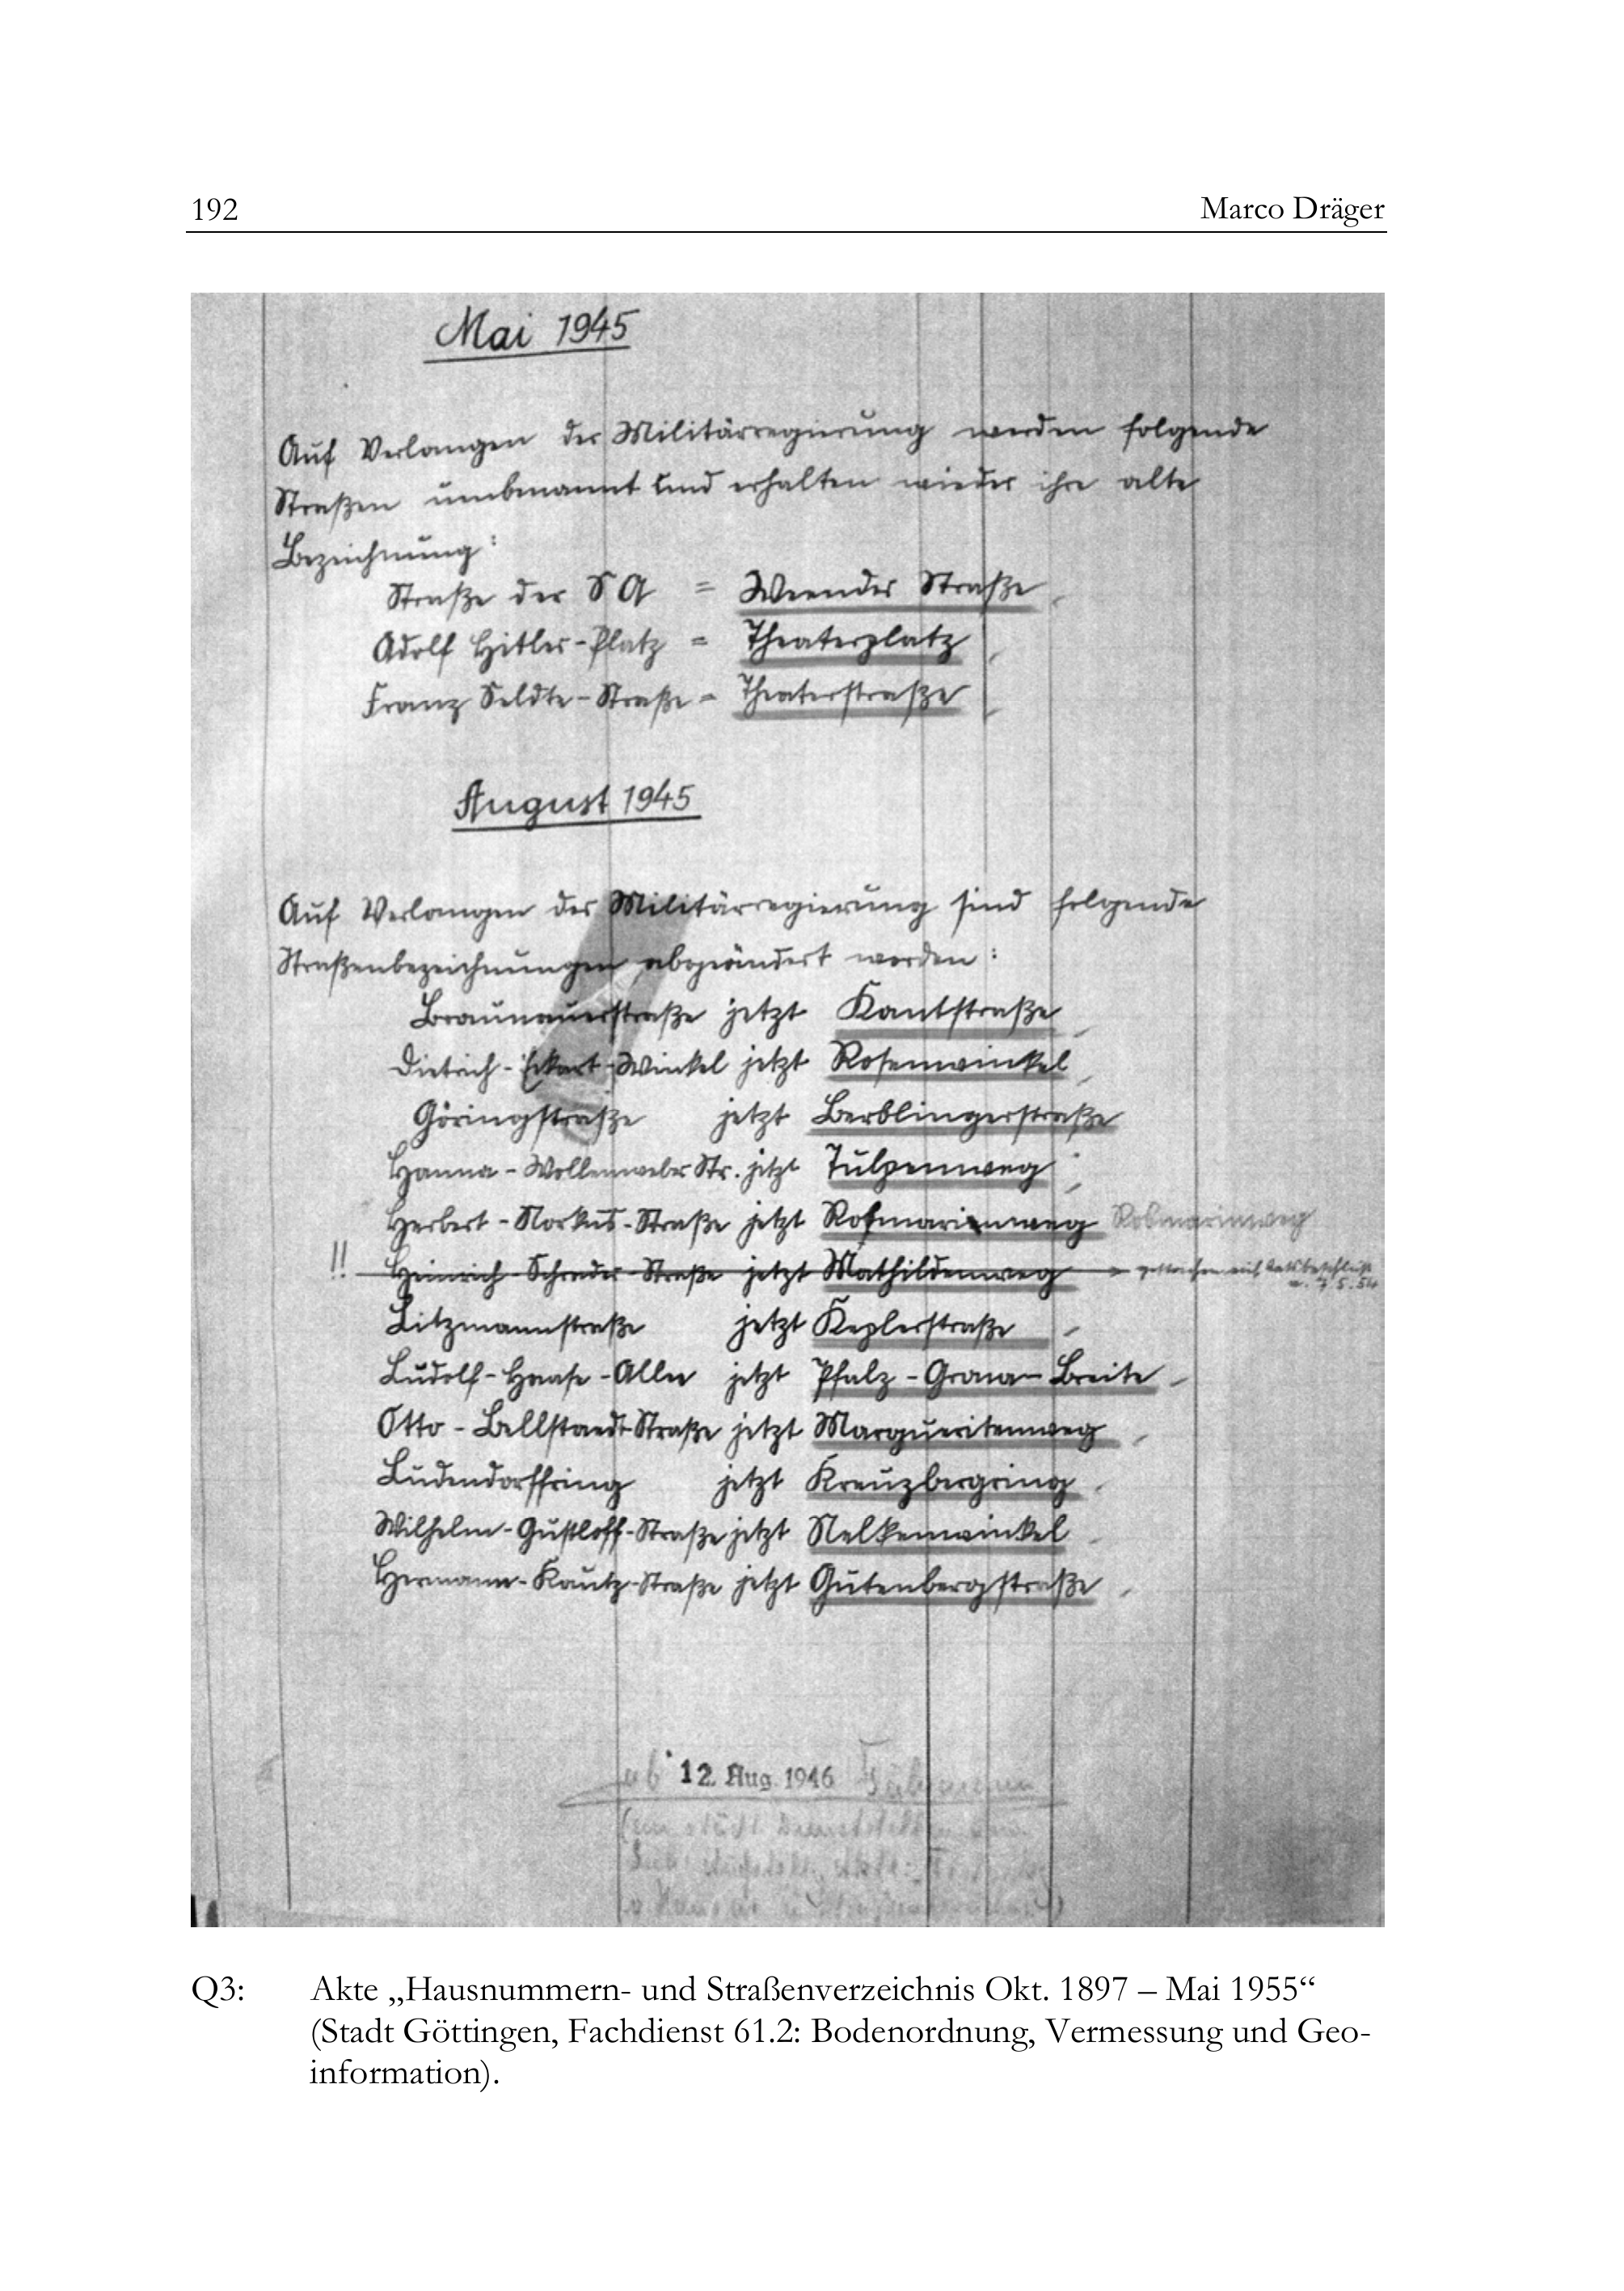 192
Marco Dräger
Mai 1945
Auf Verlangen der Militärregierung werden folgende
Straßen umbenannt und erhalten wieder ihre alte
Bezeichnung:
Straße der SA = Weender Straße
Adolf Hitler-Platz = Theaterplatz
Franz Seldte-Straße = Theaterstraße
August 1945
Auf Verlangen der Militärregierung sind folgende
Straßenbezeichnungen abgeändert worden:
Braunauerstraße jetzt Kantstraße
Dietrich-Eckart-Winkel jetzt Rosenwinkel
Göringstraße jetzt Berblingerstraße
Hanna-Wollenweber Str. jetzt Tulpenweg
Herbert-Norkus-Straße jetzt Rosmarienweg Rosmarinweg
!! Heinrich-Schrader-Straße jetzt Mathildenweg → gestrichen auf Ratsbeschluß
v. 7.5.54
Litzmannstraße jetzt Keplerstraße
Ludolf-Haase-Allee jetzt Pfalz-Grona-Breite
Otto-Bellstaedt-Straße jetzt Margueritenweg
Ludendorffring jetzt Kreuzbergring
Wilhelm-Gustloff-Straße jetzt Nelkenwinkel
Hermann-Kautz-Straße jetzt Gutenbergstraße
ab 12. Aug. 1946
Q3: Akte „Hausnummern- und Straßenverzeichnis Okt. 1897 – Mai 1955“
(Stadt Göttingen, Fachdienst 61.2: Bodenordnung, Vermessung und Geo-
information).